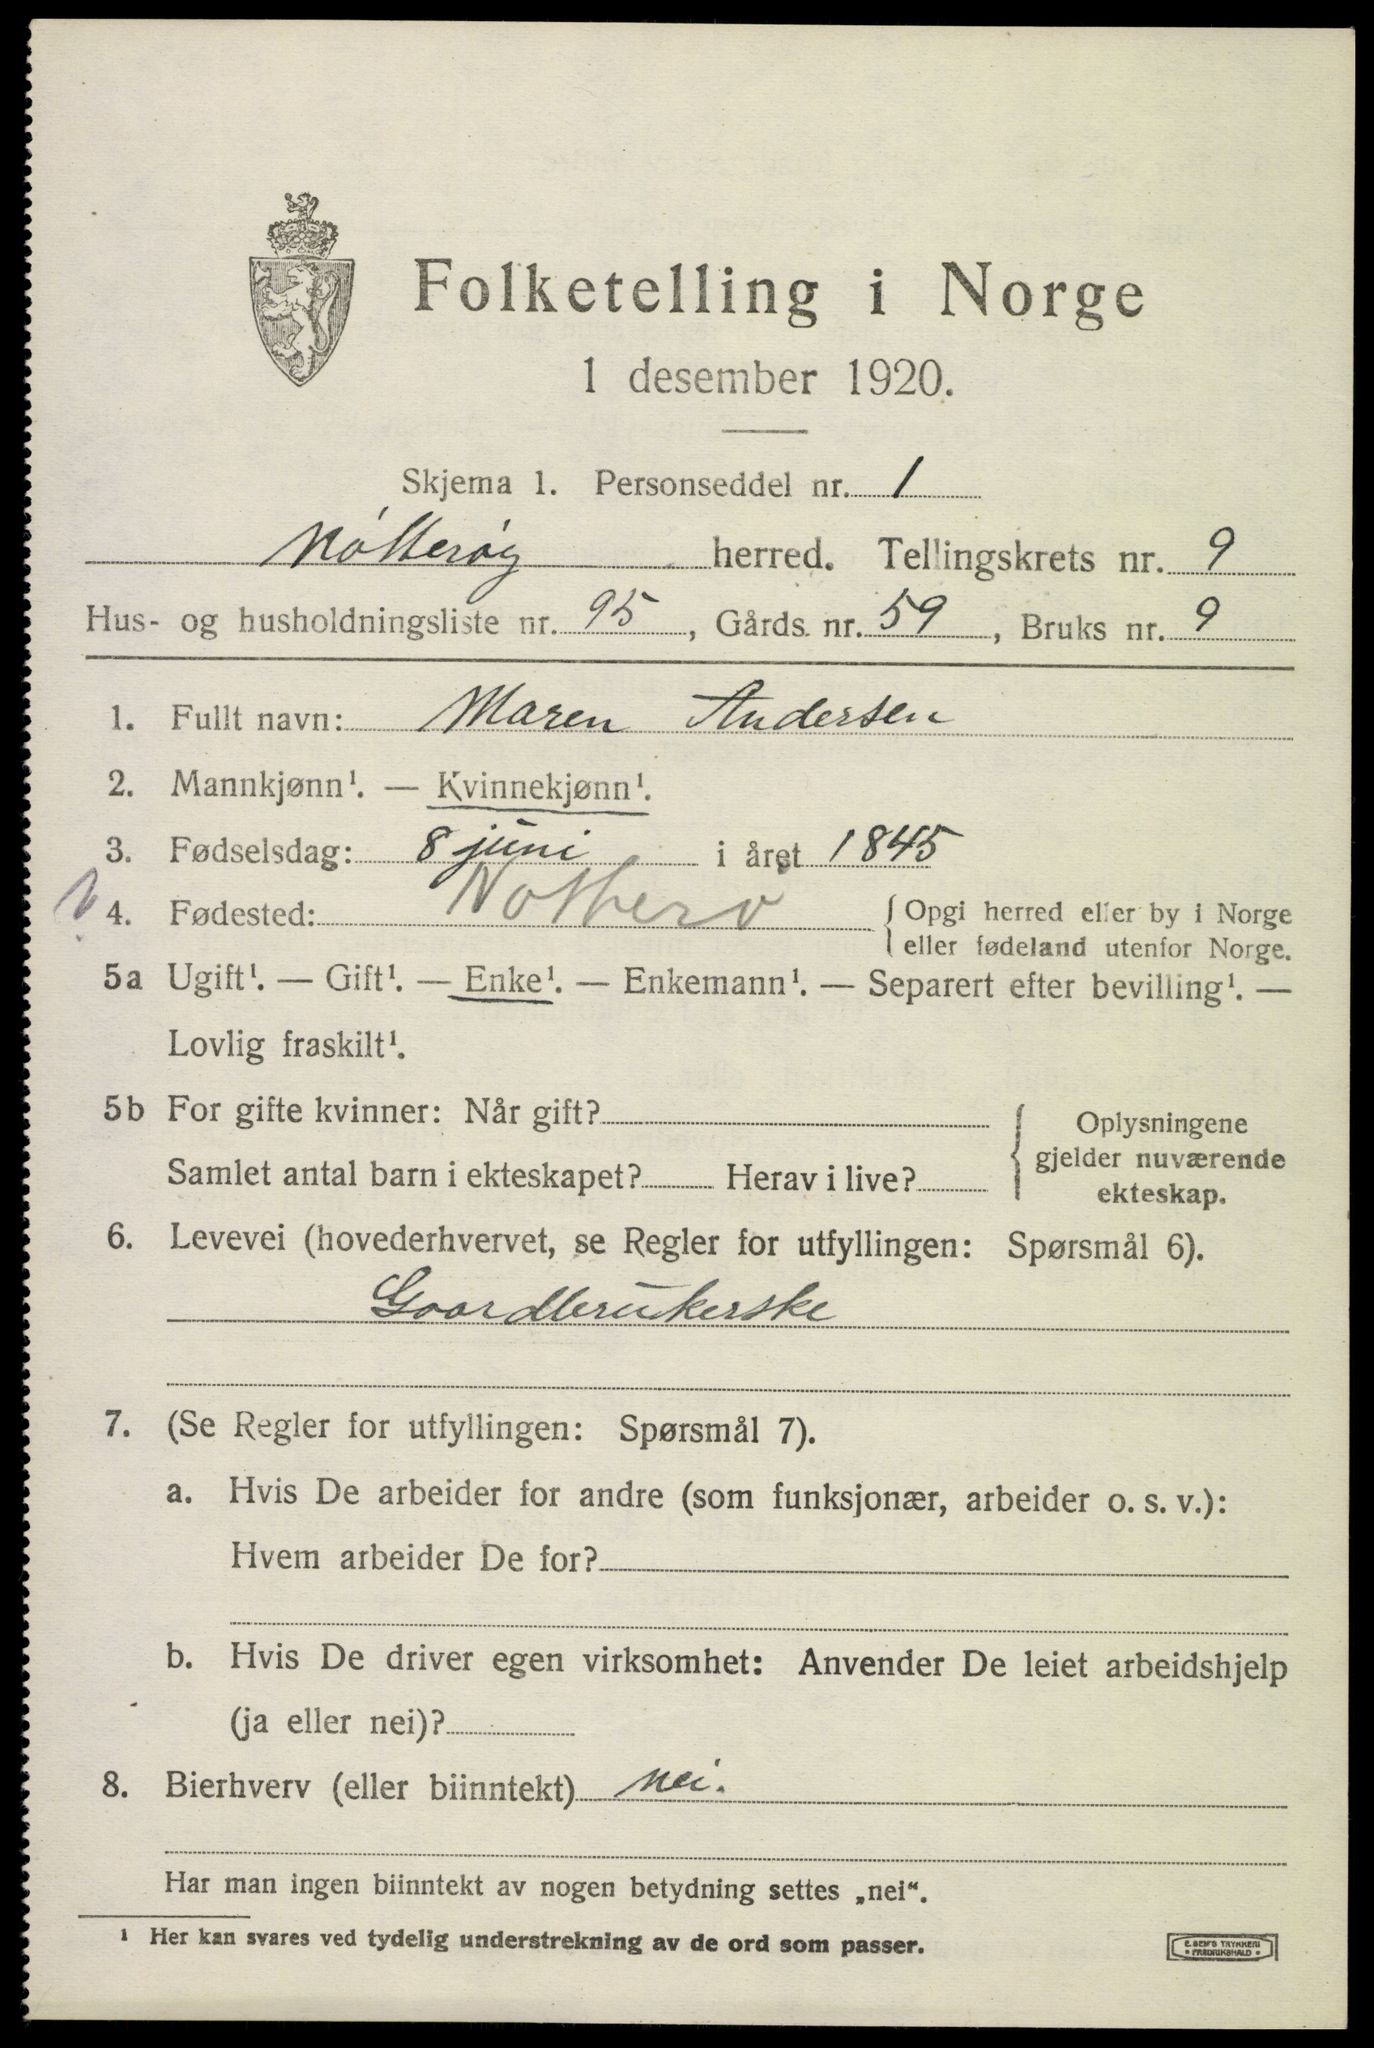 Folketelling i Norge
1 desember 1920.
Skjema 1. Personseddel nr. 1
Nótterøy herred. Tellingskrets nr. 9
Hus- og husholdningsliste nr. 95, Gårds. nr. 59, Bruks nr. 9
1. Fullt navn: Maren Andersen
2. Mannkjønn¹. — Kvinnekjønn¹.
3. Fødselsdag: 8 juni i året 1845
4. Fødested: Nottero { Opgi herred eller by i Norge
eller fødeland utenfor Norge.
5a Ugift¹. — Gift¹. — Enke¹. — Enkemann¹. — Separert efter bevilling¹. —
Lovlig fraskilt¹.
5b For gifte kvinner: Når gift?
Samlet antal barn i ekteskapet? Herav i live?
Oplysningene
gjelder nuværende
ekteskap.
6. Levevei (hovederhvervet, se Regler for utfyllingen: Spørsmål 6).
Goardbrukerske
7. (Se Regler for utfyllingen: Spørsmål 7).
a. Hvis De arbeider for andre (som funksjonær, arbeider o. s. v.):
Hvem arbeider De for?
b. Hvis De driver egen virksomhet: Anvender De leiet arbeidshjelp
(ja eller nei)?
8. Bierhverv (eller biinntekt) nei.
Har man ingen biinntekt av nogen betydning settes „nei“.
¹ Her kan svares ved tydelig understrekning av de ord som passer.
E. SEM'S TRYKKERI
• FREDRIKSHALD •